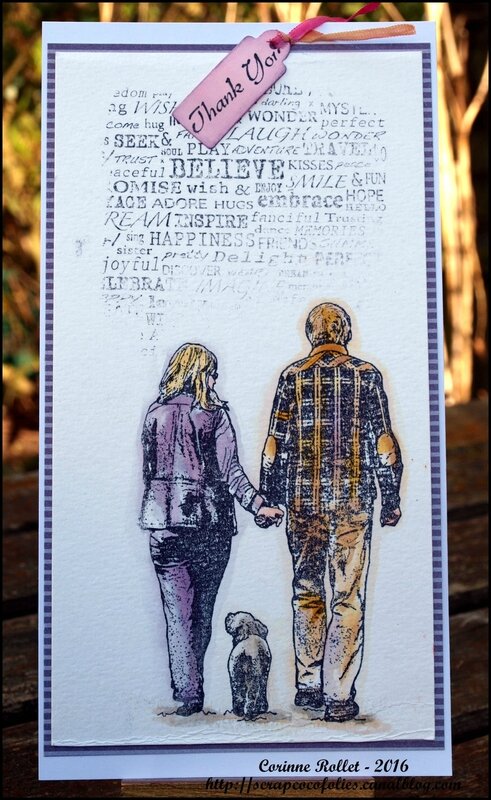 Thank You
edom
ag WISH darling MYSTER
come hug WONDER perfect
SEEK& LAUGH WONDER
SOUL PLAY ADVENTURE TRAVEL
TRUST BELIEVE KISSES peace
aceful
OMISE wish & ENJOY SMILE & FUN
ACE ADORE HUGS embrace HOPE
REAM INSPIRE fanciful Trust
sing dance MEMORIES
HAPPINESS FRIEND
sister pretty Delight PERFE
joyful DISCOVER
ELEBRATE IMAGI
WI
Corinne Rollet - 2016
http://scrapcocofolies.canalblog.com